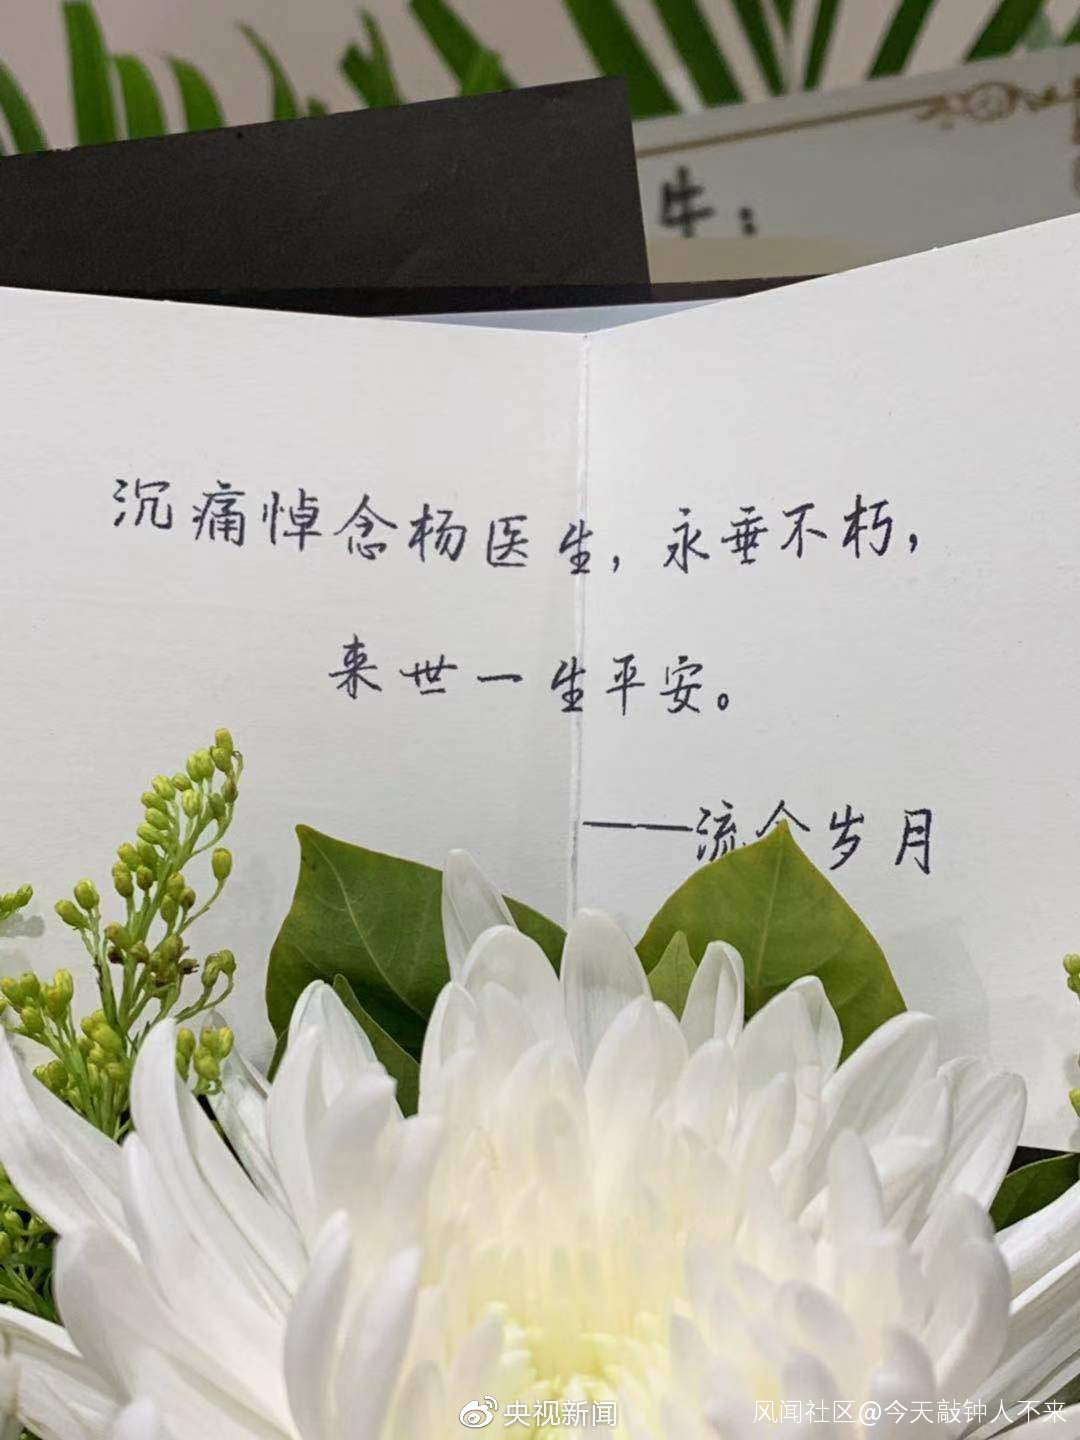 牛：
沉痛悼念杨医生，永垂不朽，
来世一生平安。
——流金岁月
央视新闻
风闻社区@今天敲钟人不来